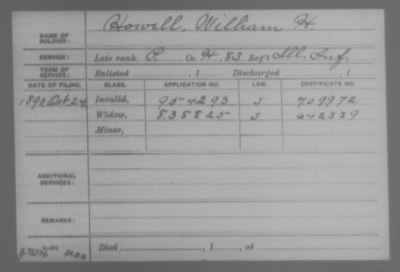 NAME OF SOLDIER: Howell, William H.
SERVICE: Late rank, P. Co. H, 83 Reg't Ill. Inf.
TERM OF SERVICE: Enlisted , 1 Discharged , 1
DATE OF FILING. CLASS. APPLICATION NO. LAW. CERTIFICATE NO.
1890 Oct 24 Invalid, 954293 J 709972
Widow, 838825 J 642339
Minor,
ADDITIONAL SERVICES:
REMARKS:
Died , 1 , at